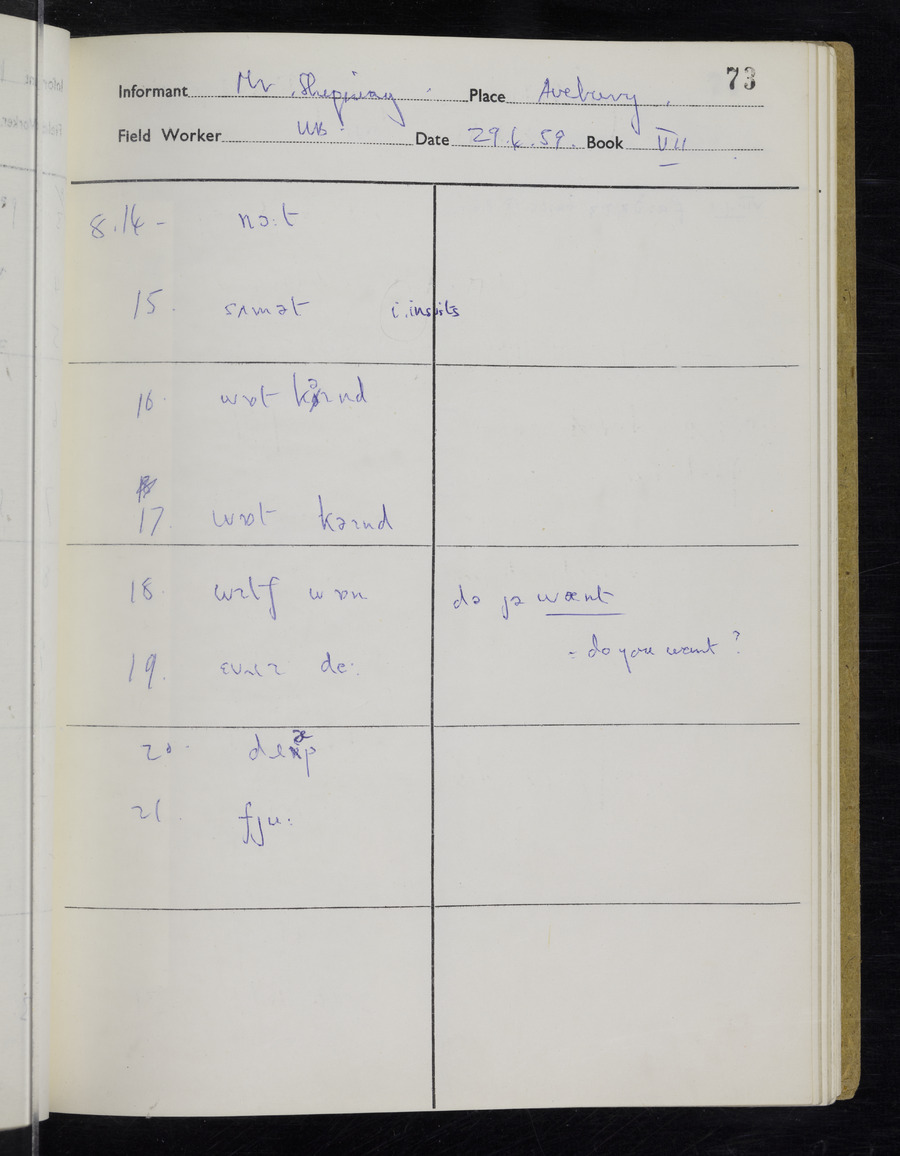 73
Informant Mr Place Avebury.
Field Worker Date 29.6.59. Book VII
8.14- nɔ:t
15. sʌmət i. insists
16. wɒt kəɪnd
17. wɒt kəɪnd
18. wɪtʃ wɒn də jə wænt
= do you want?
19. ɛvɹɪ de:
20. deæp
21. fju: